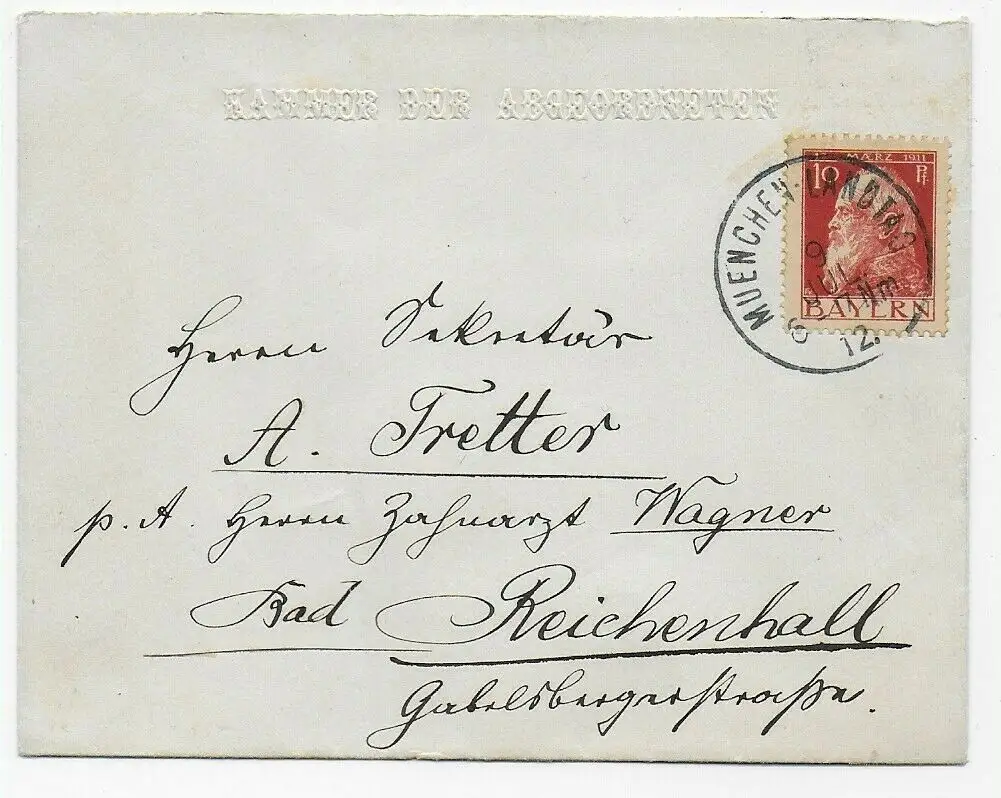 KAMMER DER ABGEORDNETEN
12. MÆRZ 1911
10 Pf.
BAYERN
MUENCHEN-LANDTAG
9 JUL
12.
Herrn Sekretär
A. Tretter
p. A. Herrn Zahnarzt Wagner
Bad Reichenhall
Gabelsbergerstraße.